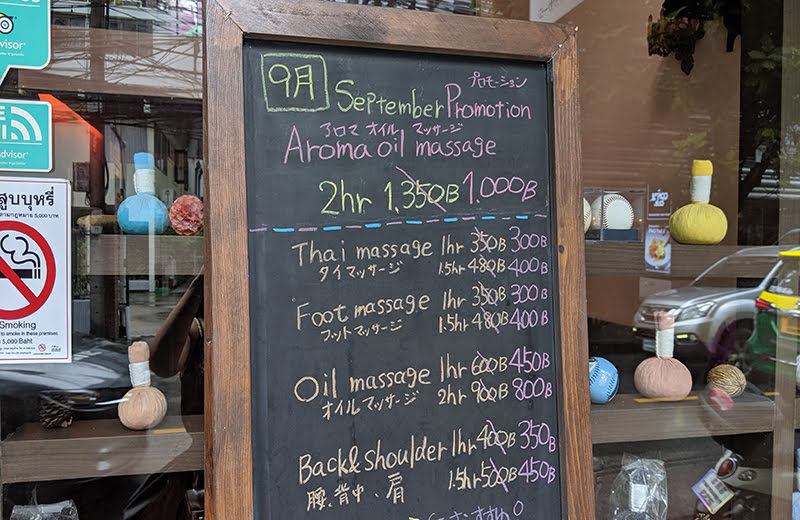 9月 September Promotion
プロモーション
アロマ オイル マッサージ
Aroma oil massage
2hr 1,350B 1,000B
Thai massage 1hr 350B 300B
タイマッサージ 1.5hr 480B 400B
Foot massage 1hr 350B 300B
フットマッサージ 1.5hr 480B 400B
Oil massage 1hr 600B 450B
オイルマッサージ 2hr 900B 800B
Back&shoulder 1hr 400B 350B
腰、背中、肩 1.5hr 500B 450B
visor
dvisor
สูบบุหรี่
5,000 บาท
Smoking
to smoke in these premises
5,000 Baht